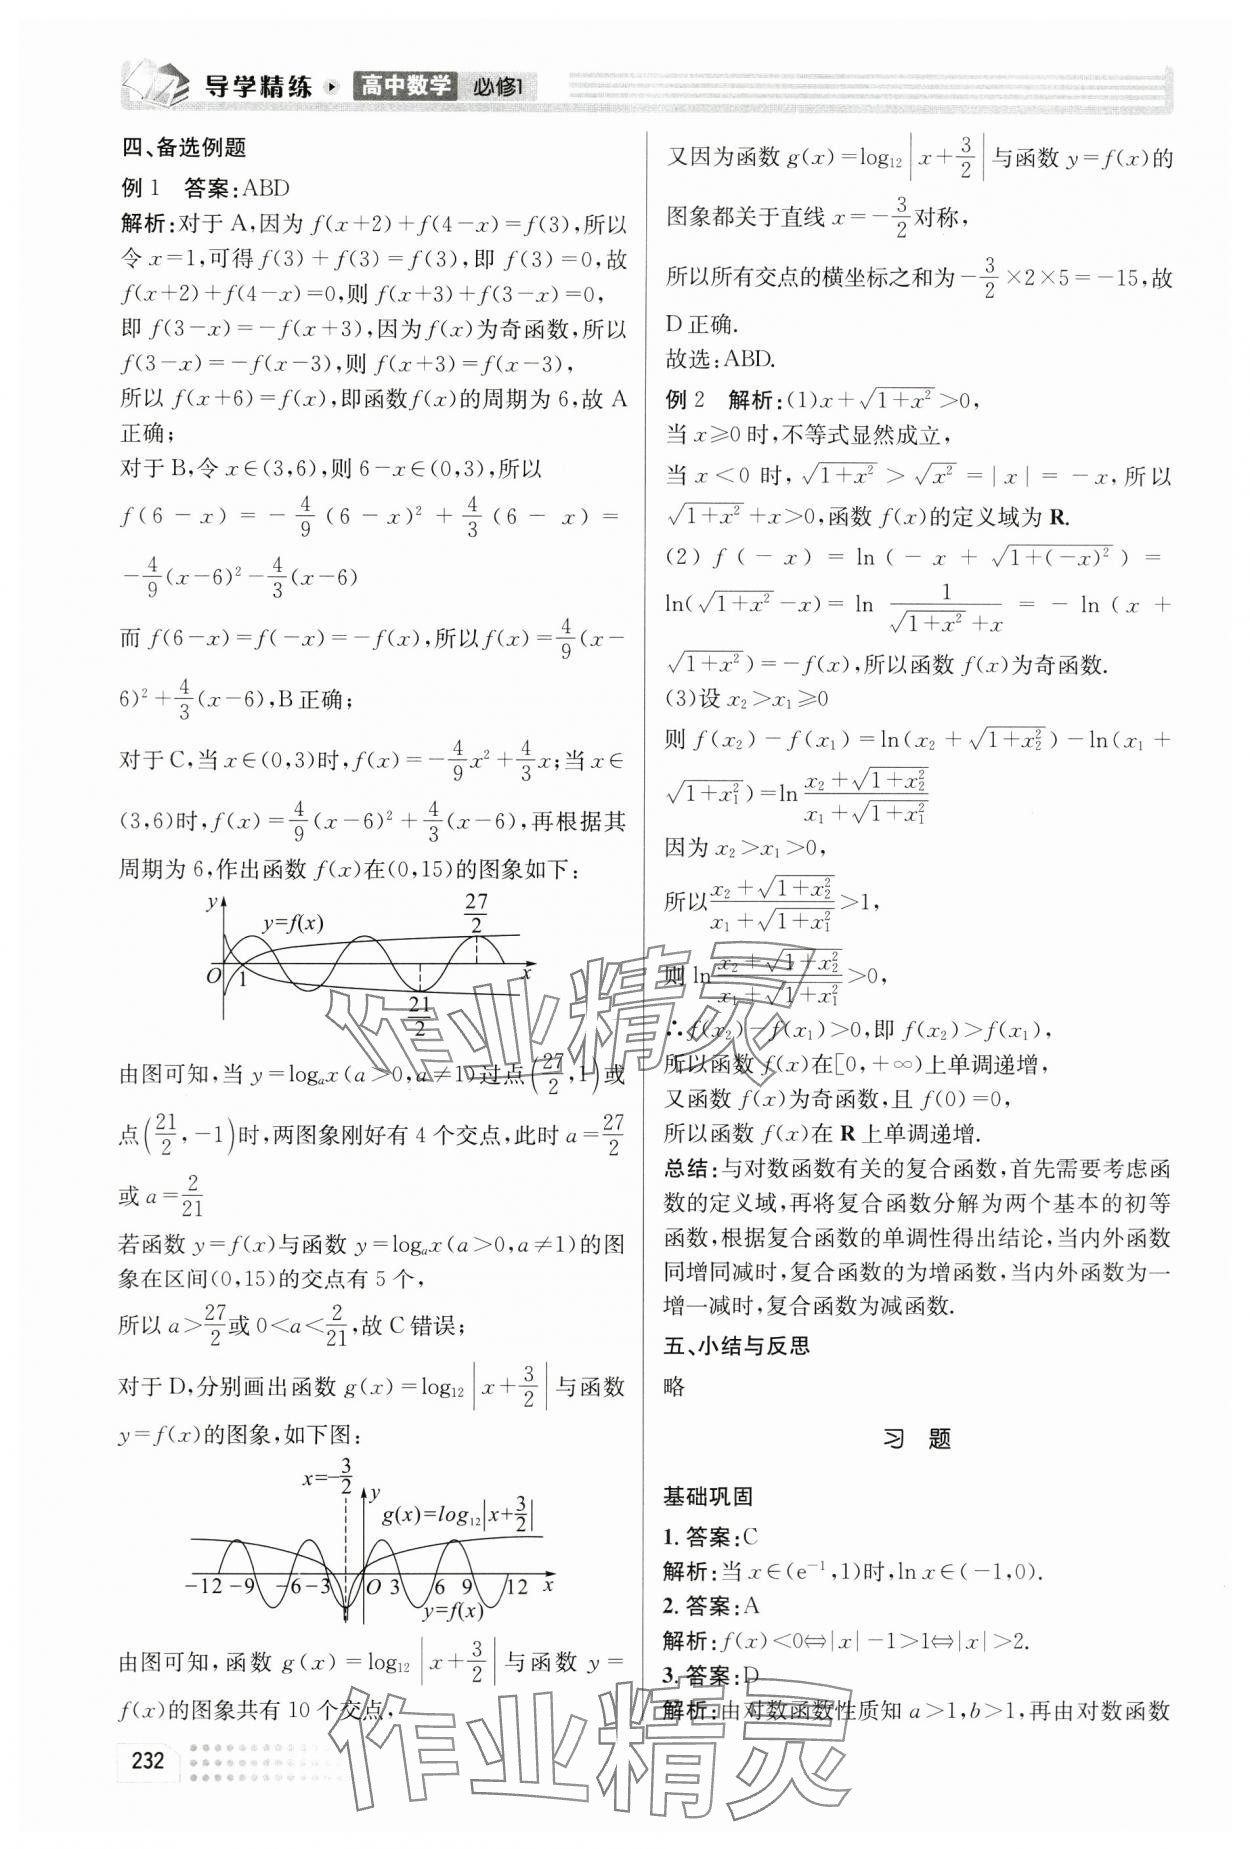 导学精练 高中数学 必修1
四、备选例题
例1 答案:ABD
解析:对于A,因为 f(x+2)+f(4-x)=f(3),所以
令 x=1,可得 f(3)+f(3)=f(3),即 f(3)=0,故
f(x+2)+f(4-x)=0,则 f(x+3)+f(3-x)=0,
即 f(3-x)=-f(x+3),因为f(x)为奇函数,所以
f(3-x)=-f(x-3),则 f(x+3)=f(x-3),
所以 f(x+6)=f(x),即函数f(x)的周期为6,故A
正确;
对于B,令 x∈(3,6),则 6-x∈(0,3),所以
f(6-x)=-4/9(6-x)²+4/3(6-x)=
-4/9(x-6)²-4/3(x-6)
而 f(6-x)=f(-x)=-f(x),所以f(x)=4/9(x-
6)²+4/3(x-6),B正确;
对于C,当x∈(0,3)时,f(x)=-4/9x²+4/3x;当x∈
(3,6)时,f(x)=4/9(x-6)²+4/3(x-6),再根据其
周期为6,作出函数 f(x)在(0,15)的图象如下:
y
y=f(x)
27/2
O 1 x
21/2
由图可知,当 y=logₐx(a>0,a≠1)过点(27/2,1)或
点(21/2,-1)时,两图象刚好有4个交点,此时 a=27/2
或 a=2/21
若函数 y=f(x)与函数 y=logₐx(a>0,a≠1)的图
象在区间(0,15)的交点有5个,
所以 a>27/2或 0<a<2/21,故C错误;
对于D,分别画出函数 g(x)=log₁₂|x+3/2|与函数
y=f(x)的图象,如下图:
x=-3/2
y
g(x)=log₁₂|x+3/2|
-12 -9 -6 -3 O 3 6 9 12 x
y=f(x)
由图可知,函数 g(x)=log₁₂|x+3/2|与函数 y=
f(x)的图象共有10个交点,
232
又因为函数 g(x)=log₁₂|x+3/2|与函数 y=f(x)的
图象都关于直线 x=-3/2对称,
所以所有交点的横坐标之和为-3/2×2×5=-15,故
D正确.
故选:ABD.
例2 解析:(1)x+√(1+x²)>0,
当 x≥0时,不等式显然成立,
当 x<0 时,√(1+x²)>√(x²)=|x|=-x,所以
√(1+x²)+x>0,函数 f(x)的定义域为 R.
(2) f(-x)=ln(-x+√(1+(-x)²))=
ln(√(1+x²)-x)=ln 1/(√(1+x²)+x)=-ln(x+
√(1+x²))=-f(x),所以函数 f(x)为奇函数.
(3)设 x₂>x₁≥0
则 f(x₂)-f(x₁)=ln(x₂+√(1+x₂²))-ln(x₁+
√(1+x₁²))=ln (x₂+√(1+x₂²))/(x₁+√(1+x₁²))
因为 x₂>x₁>0,
所以(x₂+√(1+x₂²))/(x₁+√(1+x₁²))>1,
则 ln (x₂+√(1+x₂²))/(x₁+√(1+x₁²))>0,
∴f(x₂)-f(x₁)>0,即 f(x₂)>f(x₁),
所以函数 f(x)在[0,+∞)上单调递增,
又函数 f(x)为奇函数,且 f(0)=0,
所以函数 f(x)在 R 上单调递增.
总结:与对数函数有关的复合函数,首先需要考虑函
数的定义域,再将复合函数分解为两个基本的初等
函数,根据复合函数的单调性得出结论,当内外函数
同增同减时,复合函数的为增函数,当内外函数为一
增一减时,复合函数为减函数.
五、小结与反思
略
习 题
基础巩固
1. 答案:C
解析:当 x∈(e⁻¹,1)时,ln x∈(-1,0).
2. 答案:A
解析:f(x)<0⇔|x|-1>1⇔|x|>2.
3. 答案:D
解析:由对数函数性质知 a>1,b>1,再由对数函数
作业精灵
作业精灵